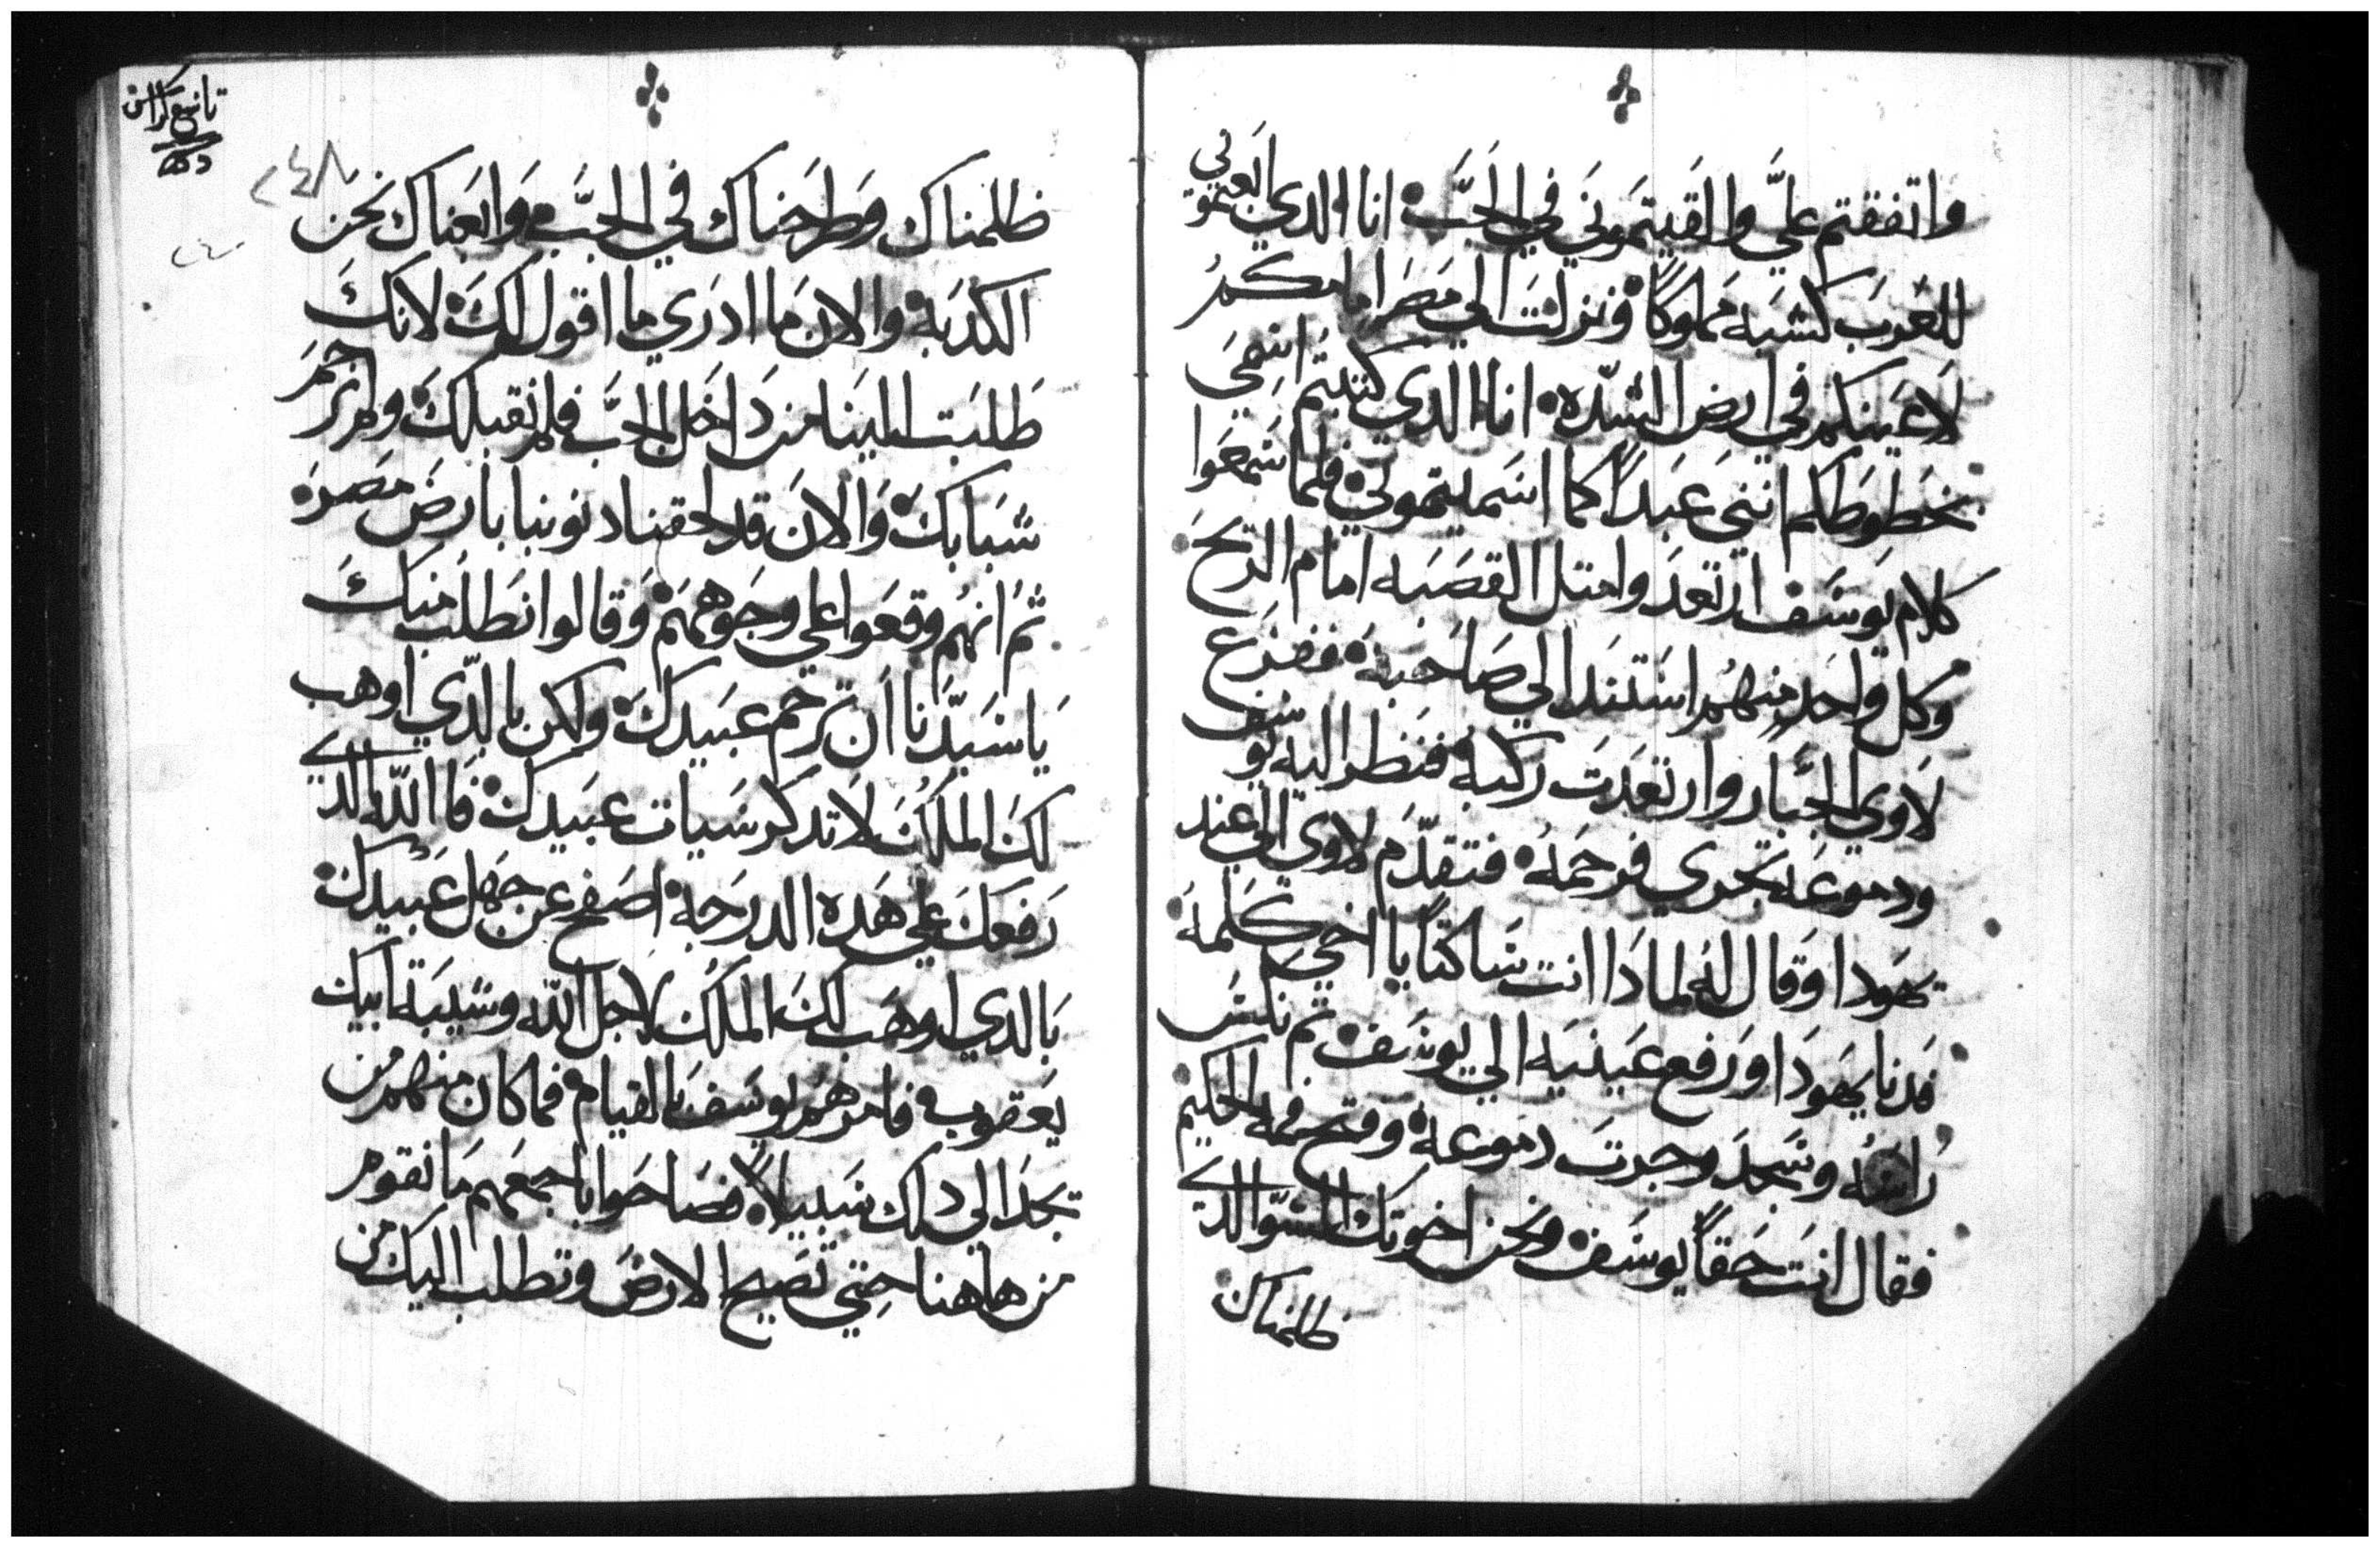 واتفقتم عليَّ والقيتموني في الجبّ انا الدي ابعتموني
للعرب كشبه مملوكاً ونزلت الي مصر امامكم
لاعينكم في ارض الشدّه انا الدي كتبتم اسمي
بخطوطكم انني عبداً كما اسميتموني فلما سمعوا
كلام يوسف ارتعد وامتل القصبه امام الريح
وكل واحد منهم استند الي صاحبه ففزع
لاوي الجبار وارتعدت ركبه فنظر اليه يوسف
ودموعه تجري فرحمه فتقدّم لاوي الي عند
يهودا وقال له لمادا انت ساكتاً يا اخي كلمه
فدنا يهودا ورفع عينيه الي يوسف ثم نكس
راسه وسجد وجرت دموعه وفتح فمه الحكيم
فقال انت حقاً يوسف ونحن اخوتك السوّ الدي
ظلمناك
تاسع كراس
٢٤٨
ظلمناك وطرحناك في الجبّ وابعناك نحن
الكدبه والان ما ادري ما اقول لك لانك
طلبت الينا من داخل الجبّ فلم نقبلك ولم نرحم
شبابك والان قد لحقنا دنوبنا بارض مصر
ثم انهم وقعوا علي وجوههم وقالوا نطلب منك
يا سيّدنا ان ترحم عبيدك ولكن بالدّي اوهب
لك الملك لا تدكر سيات عبيدك فاالله الدي
رفعك علي هده الدرجه اصفح عن جهل عبيدك
بالدي اوهب لك الملك لاجل الله وشيبة ابيك
يعقوب فامرهم يوسف بالقيام فما كان منهم من
تجد الي دلك سبيلاً فصاحوا باجمعهم ما نقوم
من هاهنا حتي تصيح الارض وتطلب اليك من